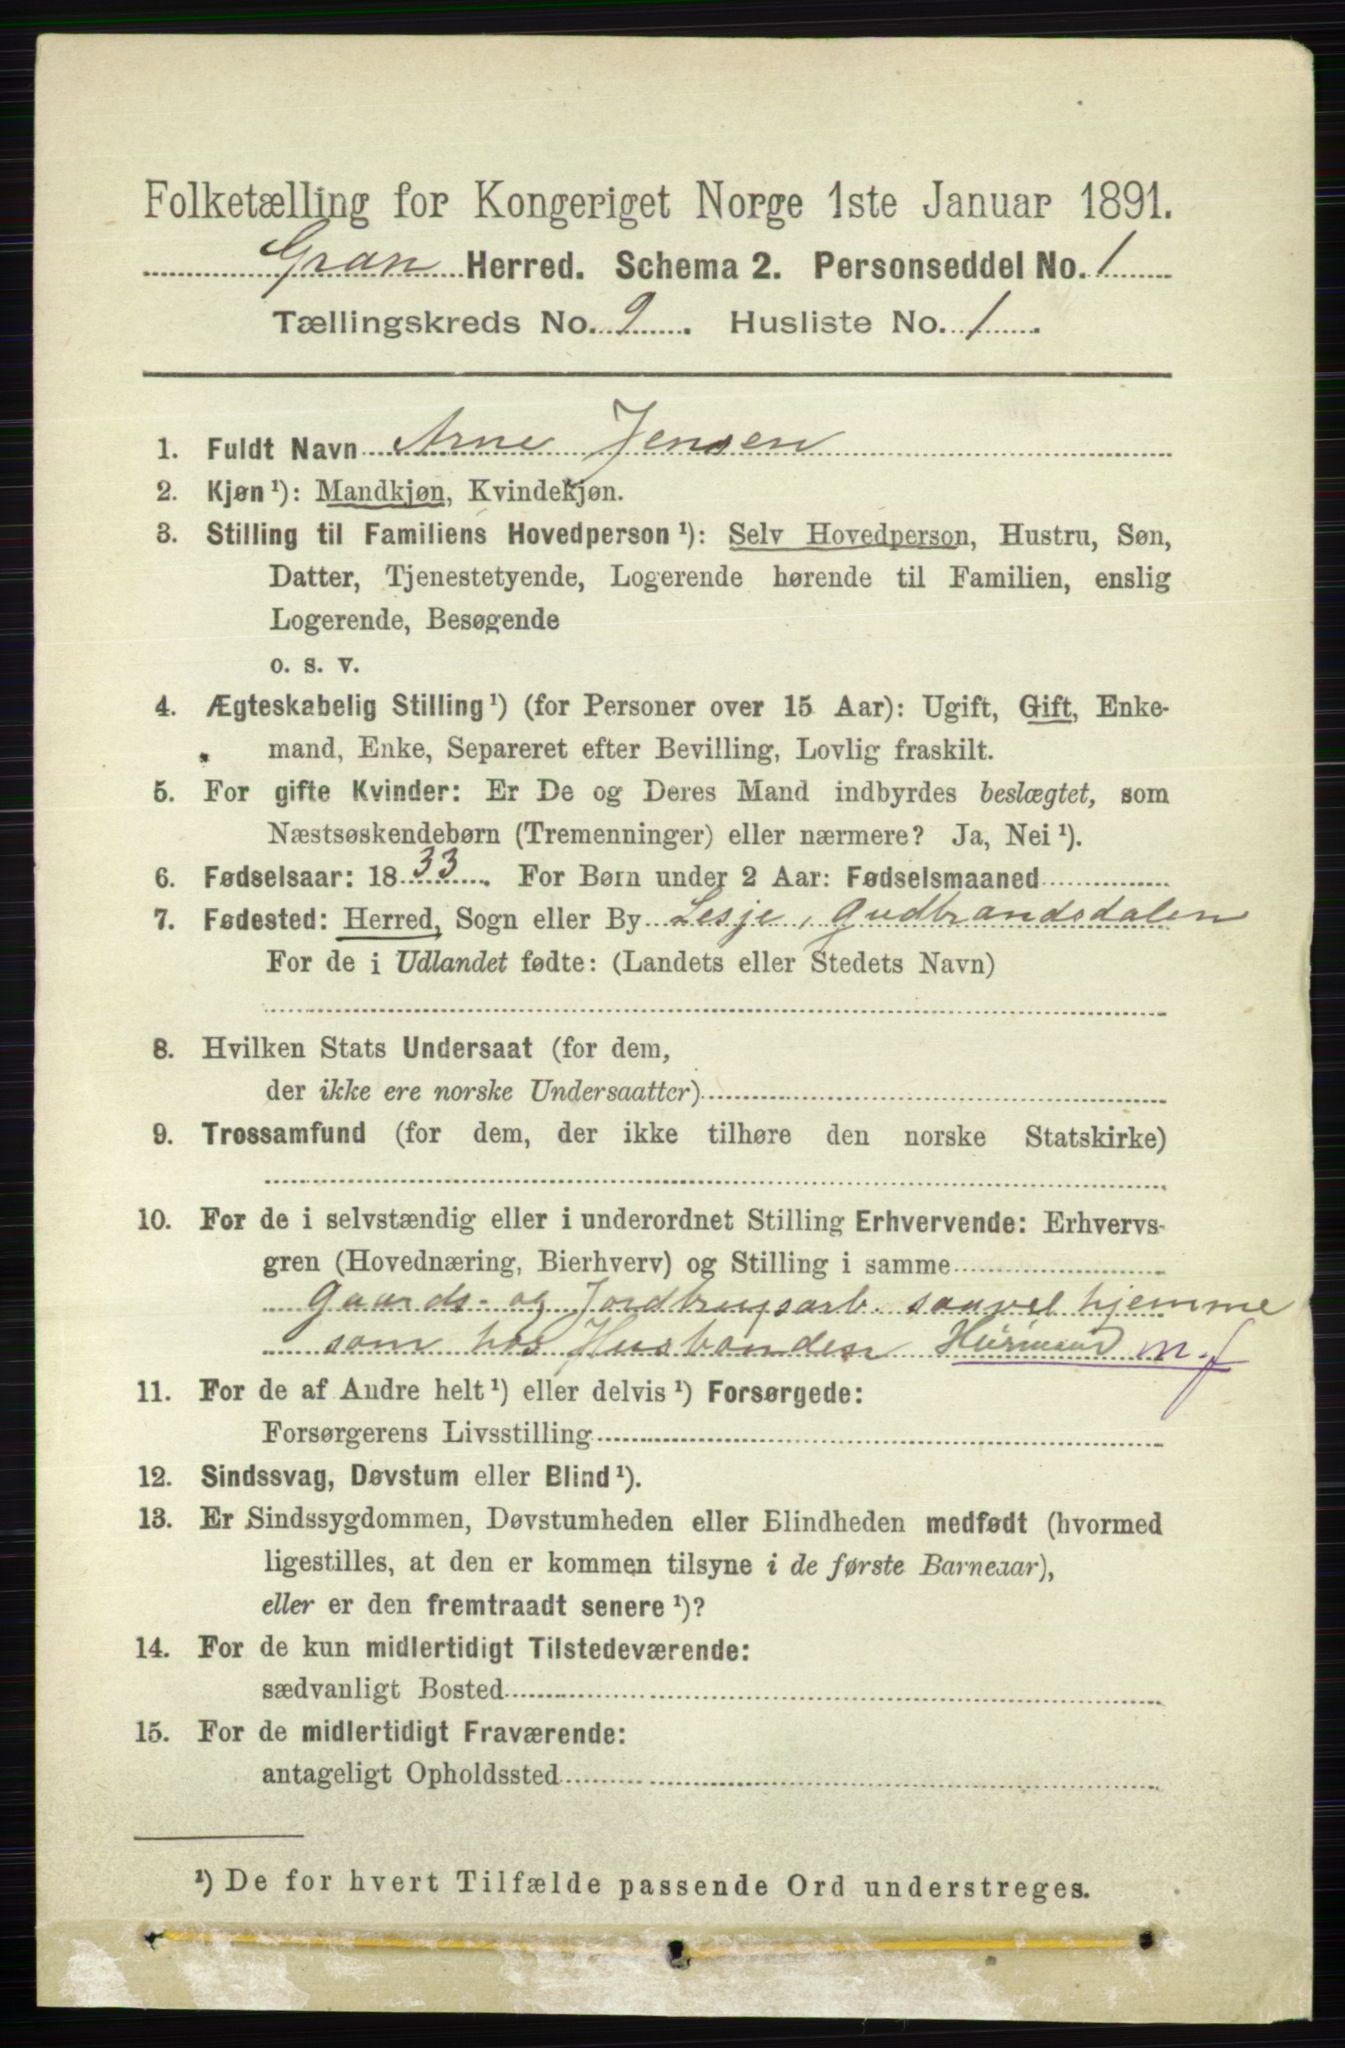 Folketælling for Kongeriget Norge 1ste Januar 1891.
Gran Herred. Schema 2. Personseddel No. 1
Tællingskreds No. 9. Husliste No. 1.
1. Fuldt Navn Arne Jensen
2. Kjøn¹): Mandkjøn, Kvindekjøn.
3. Stilling til Familiens Hovedperson¹): Selv Hovedperson, Hustru, Søn,
Datter, Tjenestetyende, Logerende hørende til Familien, enslig
Logerende, Besøgende
o. s. v.
4. Ægteskabelig Stilling¹) (for Personer over 15 Aar): Ugift, Gift, Enke-
mand, Enke, Separeret efter Bevilling, Lovlig fraskilt.
5. For gifte Kvinder: Er De og Deres Mand indbyrdes beslægtet, som
Næstsøskendebørn (Tremenninger) eller nærmere? Ja, Nei¹).
6. Fødselsaar: 1833. For Børn under 2 Aar: Fødselsmaaned
7. Fødested: Herred, Sogn eller By Lesje, Gudbrandsdalen
For de i Udlandet fødte: (Landets eller Stedets Navn)
8. Hvilken Stats Undersaat (for dem,
der ikke ere norske Undersaatter)
9. Trossamfund (for dem, der ikke tilhøre den norske Statskirke)
10. For de i selvstændig eller i underordnet Stilling Erhvervende: Erhvervs-
gren (Hovednæring, Bierhverv) og Stilling i samme
Gaards- og Jordbrugsarb. saavel hjemme
som hos Husbonden Husmand m. j
11. For de af Andre helt¹) eller delvis¹) Forsørgede:
Forsørgerens Livsstilling
12. Sindssvag, Døvstum eller Blind¹).
13. Er Sindssygdommen, Døvstumheden eller Blindheden medfødt (hvormed
ligestilles, at den er kommen tilsyne i de første Barneaar),
eller er den fremtraadt senere¹)?
14. For de kun midlertidigt Tilstedeværende:
sædvanligt Bosted
15. For de midlertidigt Fraværende:
antageligt Opholdssted
¹) De for hvert Tilfælde passende Ord understreges.